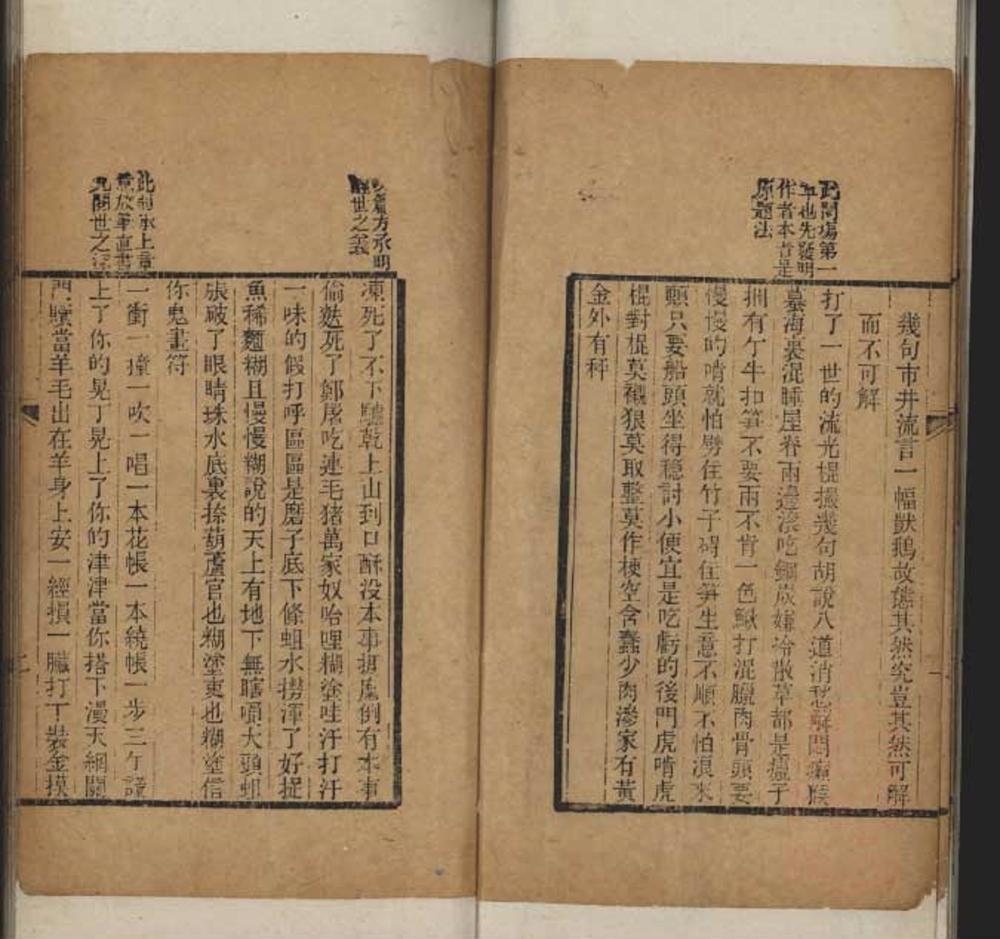 此開場第一
章也先發明
作者本旨是
原題法
幾句市井流言一幅獸鵝故態其然究豈其然可解
而不可解
打了一世的流光棍撮幾句胡說八道消愁解悶癩
墓海裏混睡屋脊兩邊滾吃鍋成嫌冷散草都是
捆有亇牛扣笋不要兩不肯一色鰍打混臘肉骨頭要
慢慢的啃就怕劈在竹子碍住笋生意不順不怕浪來
顛只要船頭坐得穩討小便宜是吃虧的後門虎啃虎
棍對棍莫襯狠莫取整莫作梗空含蠢少肉滲家有黃
金外有秤
篇方承明
世之義
凍死了不下驢乾上山到口酥没本事抓處倒有本事
偷麩死了鄒屠吃連毛猪萬家奴哈哩糊塗哇汗打汗
一味的假打呼區區是磨子底下條蛆水撈渾了好捉
魚稀麵糊且慢慢糊說的天上有地下無瞎噴大頭蛆
張破了眼睛珠水底裏捺葫蘆官也糊塗吏也糊塗信
你鬼畫符
此承上章
意放筆直書
閱世之
一衝一撞一吹一唱一本花帳一本繞帳一步三亇謊
上了你的晃丁晃上了你的津津當你搭下漫天網關
門驥當羊毛出在羊身上安一經損一臟打丅裝金摸